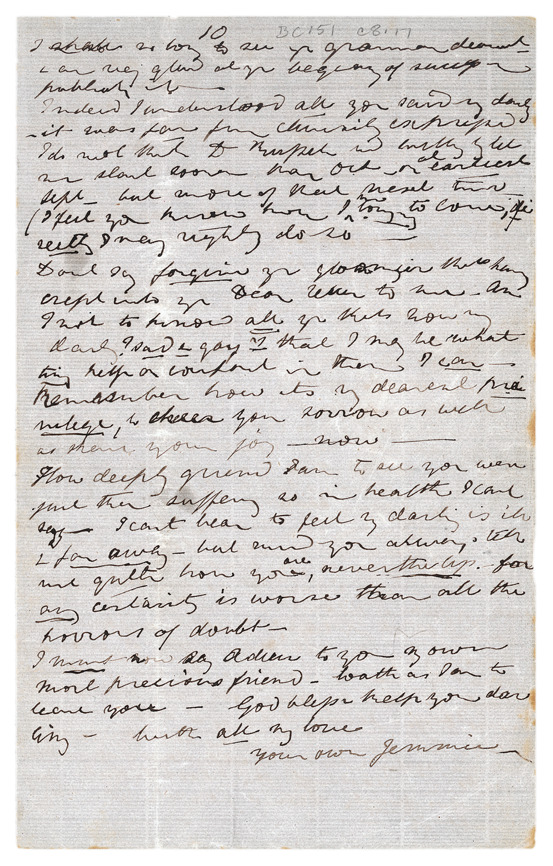 10 BC151 C8.17
I shall so long to see yr grammar dearest
& am very glad at yr begining of
publish it —
Indeed I understood all you said my darling
— it was far from clumsily expressed
I do not think D will let
me start sooner than Oct — or at earliest
Sept — but more of that next time
(I feel you know how I m longing to come, if
really I may rightly do so
Don't say forgive yr gloomier thots having
crept into yr Dear letter to me — Am
I not to know all yr thots now my
darling sad & gay & that I may be what
tiny help or comfort in them I can —
Remember how its my dearest privi
ledge, to cheer you sorrow as well
as share your joy — now —
How deeply grieved I am to see you were
just then suffering so in health I cant
say — I cant bear to feel my darling is ill
& far away — but mind you always tell
me quite how you are, nevertheless. for
any certainty is worse than all the
horrors of doubt —
I must now say Adieu to you my own
most precious friend — loath as I am to
leave you — God bless & help you dar
ling — with all my love
your own Jemmie —